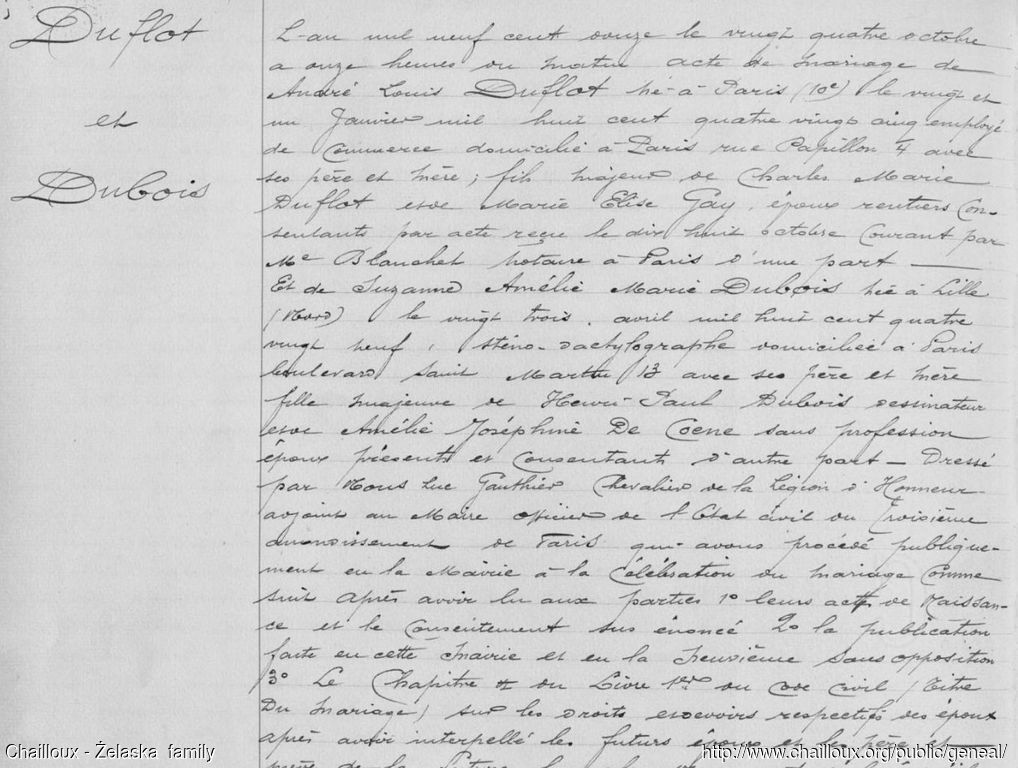 Duflot
et
Dubois
L'an mil neuf cent douze le vingt quatre octobre
a onze heures du matin acte de mariage de
André Louis Duflot né à Paris (10e) le vingt et
un Janvier mil huit cent quatre vingt cinq employé
de Commerce domicilié à Paris rue Papillon 4 avec
ses père et mère ; fils majeur de Charles Marie
Duflot et de Marie Elise Gay, époux rentiers Con-
sentants par acte reçu le dix huit octobre Courant par
Me Blanchet notaire à Paris d'une part —
Et de Suzanne Amélie Marie Dubois née à Lille
(Nord) le vingt trois avril mil huit cent quatre
vingt neuf, sténo-dactylographe domiciliée à Paris
boulevard Saint Martin 13 avec ses père et mère
fille majeure de Henri-Paul Dubois dessinateur
et de Amélie Joséphine De Coene sans profession
époux présents et Consentants d'autre part — Dressé
par Nous Luc Gauthier Chevalier de la Légion d'Honneur
adjoint au Maire officier de l'Etat civil du Troisième
arrondissement de Paris qui avons procédé publique-
ment en la Mairie à la Célébration du mariage Comme
suit après avoir lu aux parties 1o leurs actes de Naissan-
ce et le Consentement sus énoncé 2o la publication
faite en cette Mairie et en la Neuvième sans opposition
3o Le Chapitre VI du Livre 1er du Code Civil (Titre
Du Mariage) sur les droits et devoirs respectifs des époux
après avoir interpellé les futurs époux et les père et
mère de la future
Chailloux - Želaska family
http://www.chailloux.org/public/geneal/